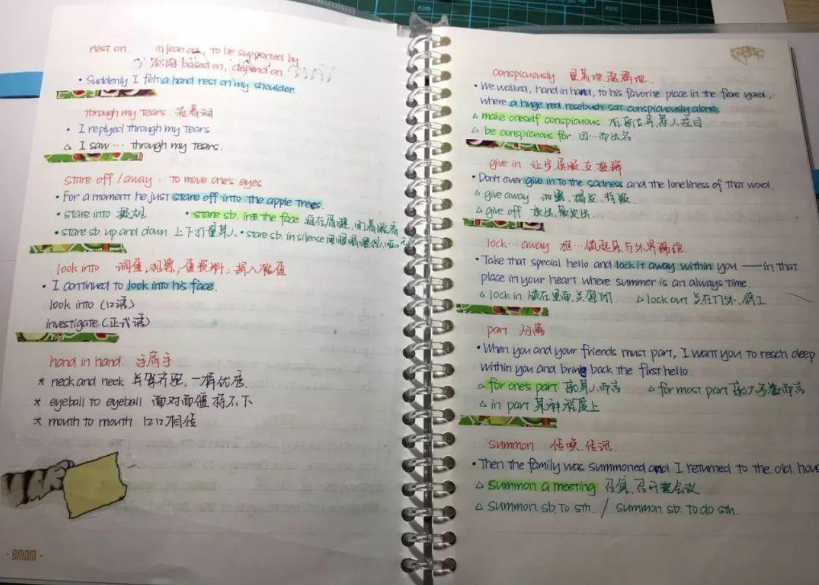 rest on. to be supported by
based on, depend on
• Suddenly I felt a hand rest on my shoulder.
through my tears
• I replyed through my tears.
△ I saw … through my tears.
stare off / away. to move one's eyes
• For a moment he just stare off into the apple trees.
• stare into • stare sb. in the face
• stare sb up and down 上下打量某人 • stare sb. in silence
look into 调查,观察,
• I continued to look into his face.
look into (口语)
investigate (正式语)
hand in hand 手牵手
* neck and neck 并驾齐驱,
* eyeball to eyeball 面对面
* mouth to mouth 口口相传
BIMDM
conspicuously
• We walked, hand in hand, to his favorite place in the front yard,
where a huge red rosebush sat conspicuously alone.
△ make oneself conspicuous
△ be conspicuous for. 因…而出名
give in 让步,屈服
• Don't ever give in to the sadness and the loneliness of that word.
△ give away
△ give off 发出,散发出
lock … away
• Take that special hello and lock it away within you — in that
place in your heart where summer is an always time.
△ lock in △ lock out 关在门外
part 分离
• When you and your friends must part, I want you to reach deep
within you and bring back the first hello.
△ for one's part 就某人而言 △ for most part
△ in part 某种程度上
summon 传唤,传讯
• Then the family was summoned and I returned to the old hous
△ summon a meeting 召集,召开会议
△ summon sb. to sth. / summon sb. to do sth.